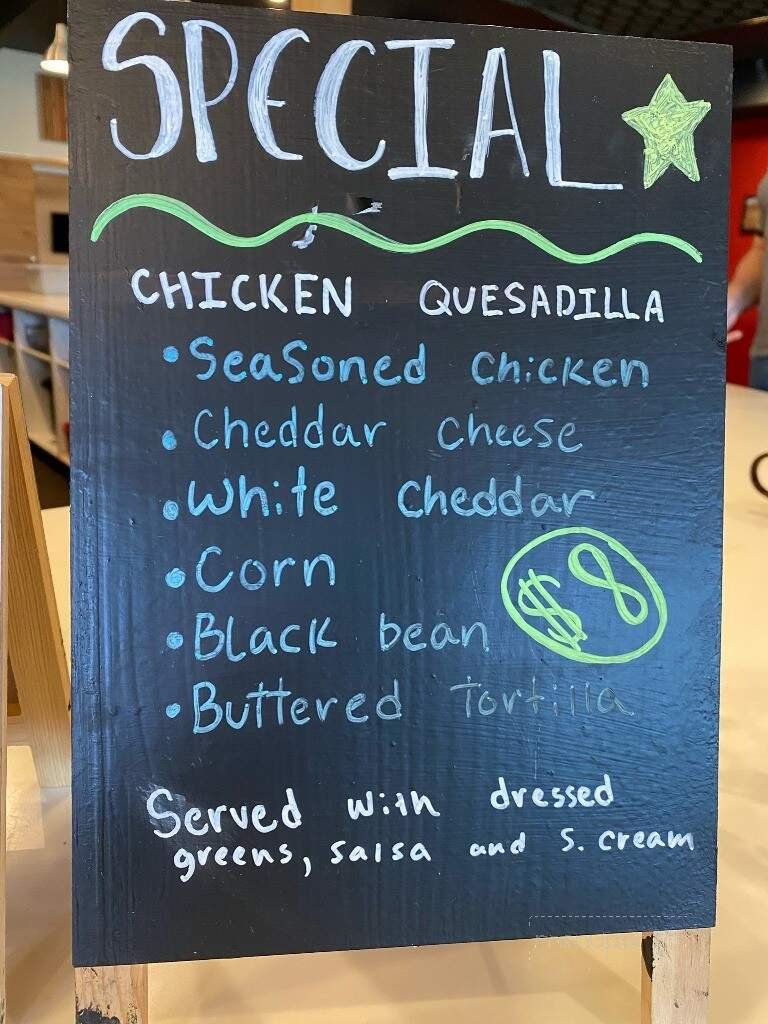 SPECIAL
CHICKEN QUESADILLA
• Seasoned chicken
• Cheddar cheese
• White cheddar
• Corn
$8
• Black bean
• Buttered Tortilla
Served with dressed
greens, salsa and S. cream